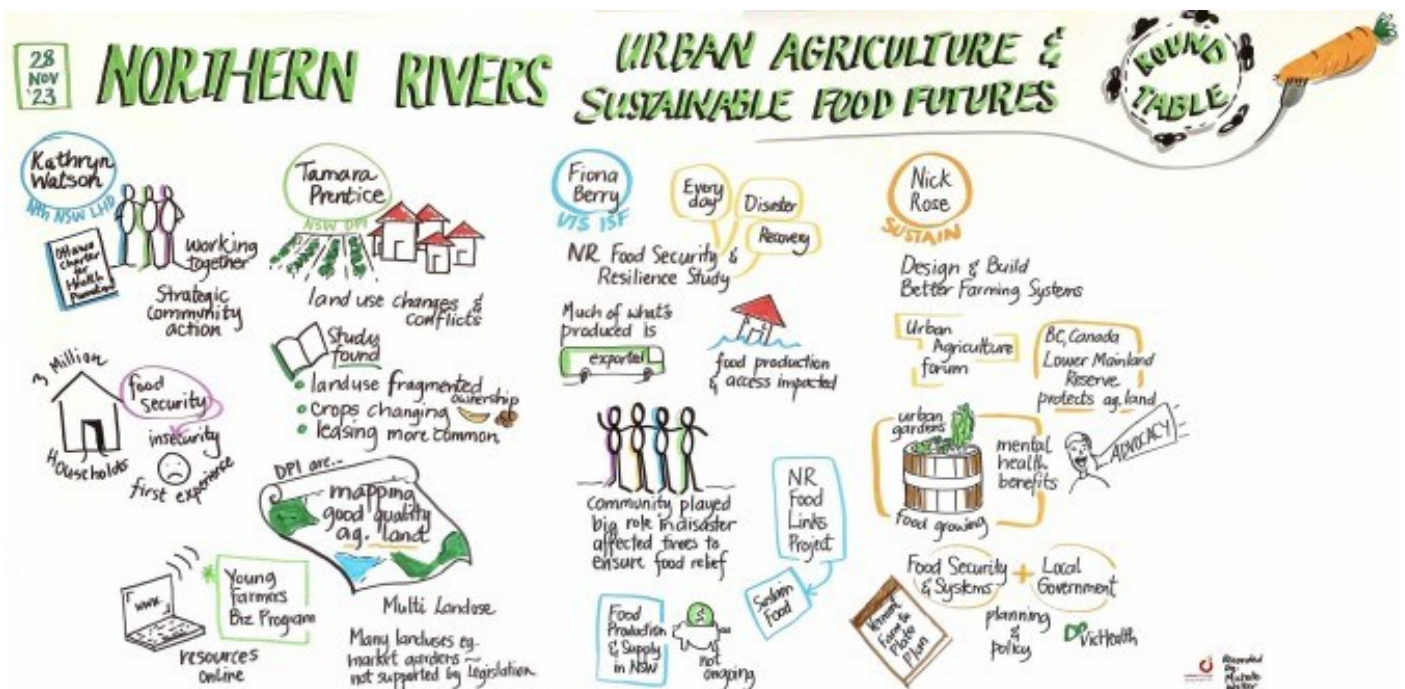 28
NOV
'23
NORTHERN RIVERS
URBAN AGRICULTURE &
SUSTAINABLE FOOD FUTURES
ROUND
TABLE
Kathryn
Watson
Nth NSW LHD
Ottawa
Charter
for
Health
Promotion
Working
together
Strategic
community
action
3 Million
Households
food
Security
insecurity
first experience
www.
resources
online
Young
Farmers
Biz Program
Tamara
Prentice
NSW DPI
land use changes &
conflicts
Study
found
• landuse fragmented
ownership
• crops changing
• leasing more common
DPI are...
mapping
good quality
ag. land
Multi Landuse
Many landuses eg.
market gardens ~
not supported by legislation
Fiona
Berry
UTS ISF
Every
day
Disaster
Recovery
NR Food Security &
Resilience Study
Much of what's
produced is
exported
food production
& access impacted
community played
big role in disaster
affected times to
ensure food relief
NR
Food
Links
Project
Sustain
Food
Food
Production
& Supply
in NSW
$
not
ongoing
Nick
Rose
SUSTAIN
Design & Build
Better Farming Systems
Urban
Agriculture
forum
BC, Canada
Lower Mainland
Reserve
protects ag. land
urban
gardens
mental
health
benefits
food growing
ADVOCACY
Food Security
& Systems
+
Local
Government
Vermont
Farm to
Plate
Plan
planning
&
policy
VicHealth
Recorded
by: